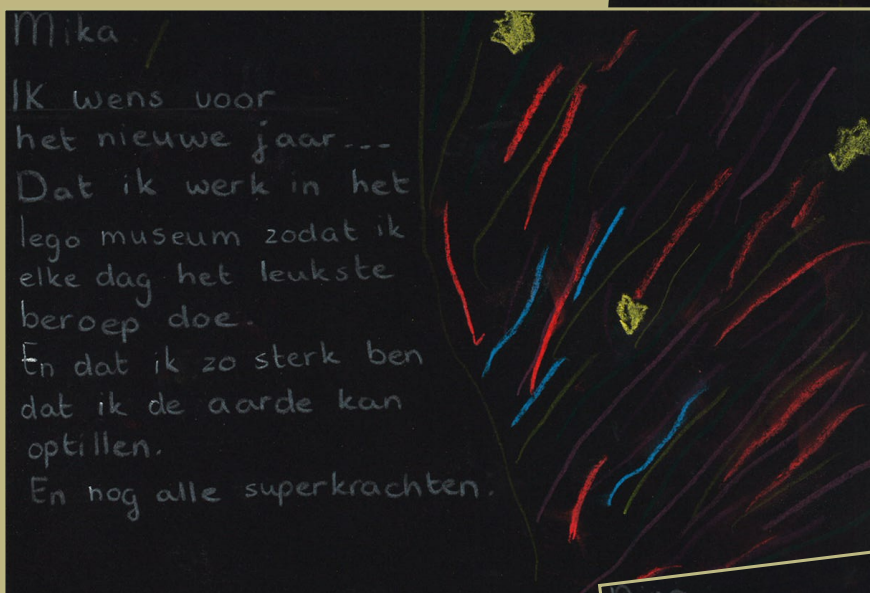 Mika
Ik wens voor
het nieuwe jaar...
Dat ik werk in het
lego museum zodat ik
elke dag het leukste
beroep doe.
En dat ik zo sterk ben
dat ik de aarde kan
optillen.
En nog alle superkrachten.